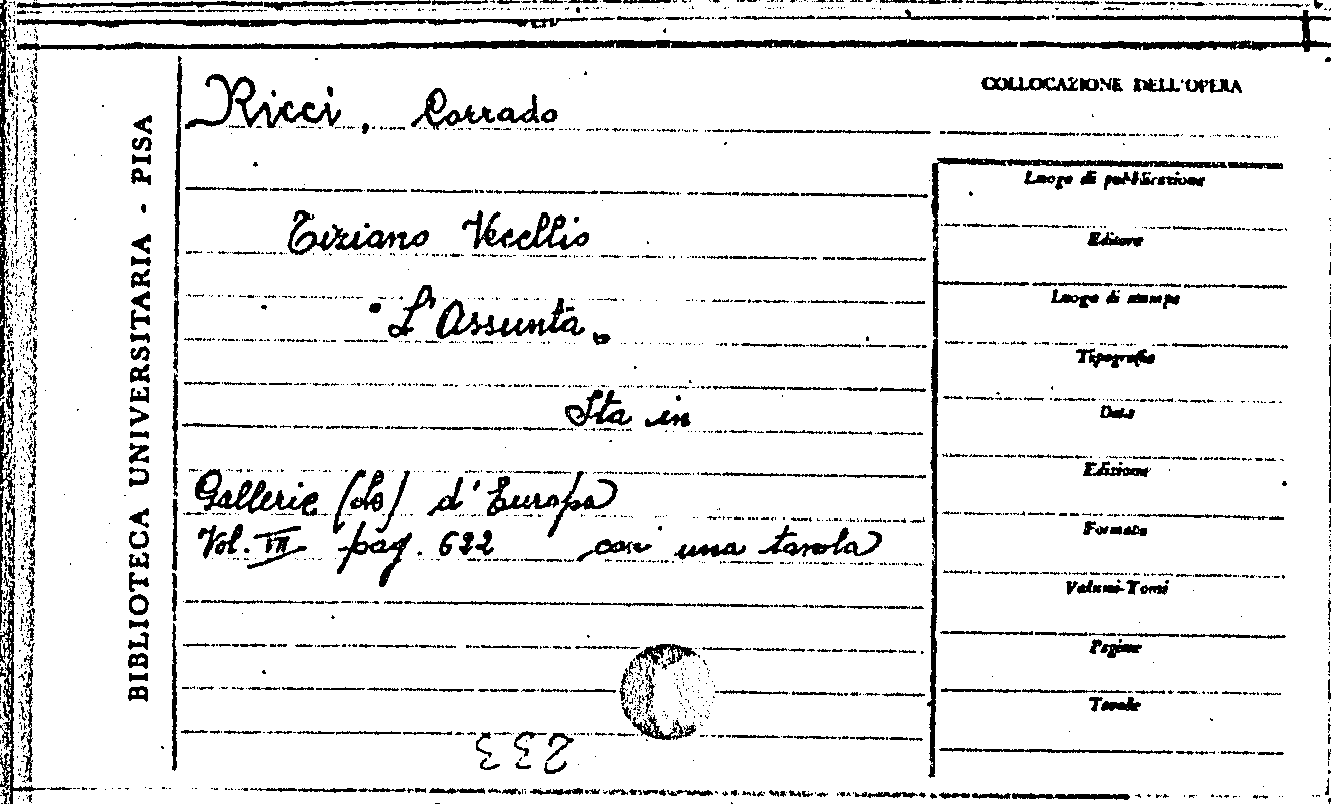 BIBLIOTECA UNIVERSITARIA - PISA
Ricci, Corrado
Tiziano Vecellio
"L'Assunta„
Sta in
Gallerie (Le) d'Europa
Vol. III pag. 622 con una tavola
233
COLLOCAZIONE DELL'OPERA
Luogo di pubblicazione
Editore
Luogo di stampa
Tipografia
Data
Edizione
Formato
Volumi-Tomi
Pagine
Tavole